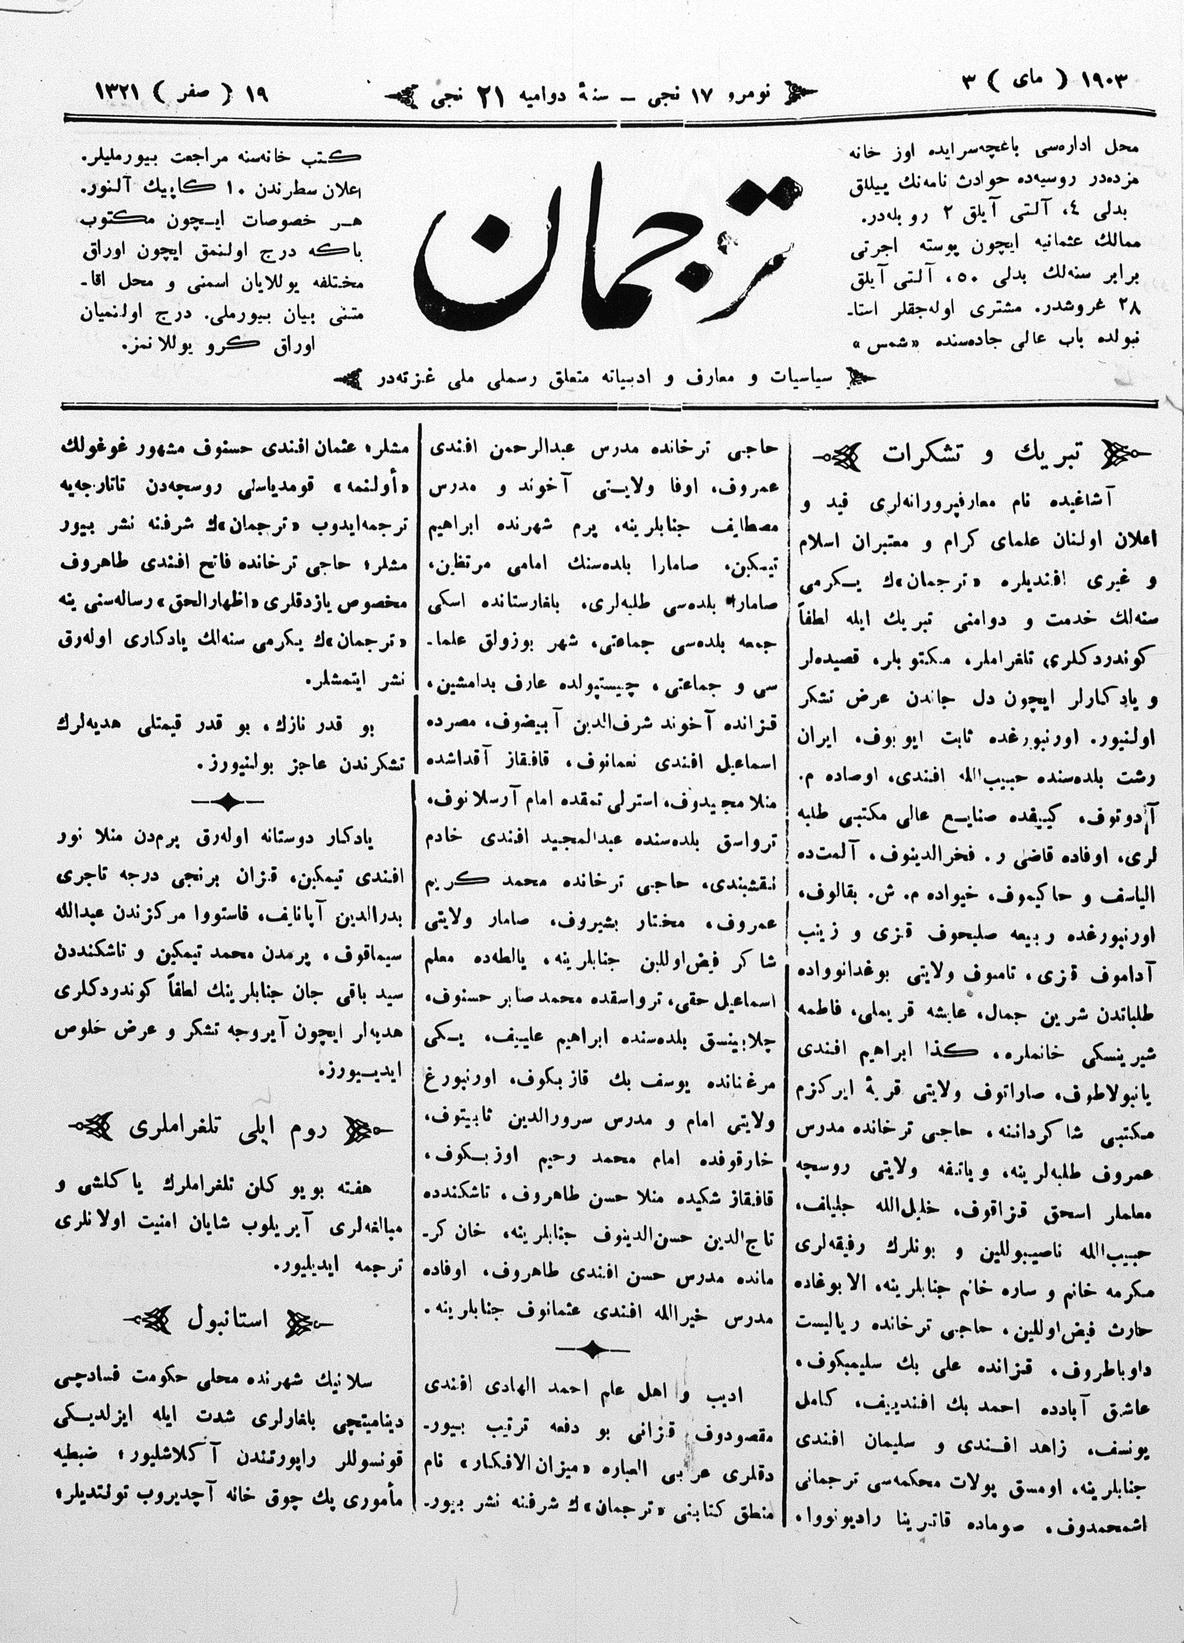 ١٩٠٣ ( ماى ) ٣
نومرو ١٧ نجى ــ سنهٔ دواميه 21 نجى
١٩ ( صفر ) ١٣٢١
محل اداره‌سى باغچه‌سرايده اوز خانه
مزده‌در روسيه‌ده حوادث نامه‌نك ييللق
بدلى ٤، آلتى آيلق ٢ روبله‌در.
ممالك عثمانيه ايچون پوسته اجرتى
برابر سنه‌لك بدلى ٥٠، آلتى آيلق
٢٨ غروشدر. مشترى اوله‌جقلر استا۔
نبولده باب عالى جاده‌سنده «شمس»
ترجمان
كتب خانه‌سنه مراجعت بيورمليلر.
اعلان سطرندن ١٠ كاپيك آلنور.
هر خصوصات ايچون مكتوب
باكه درج اولنمق ايچون اوراق
مختلفه يوللايان اسمنى و محل اقا۔
متنى بيان بيورملى. درج اولنميان
اوراق كرو يوللانمز.
سياسيات و معارف و ادبياته متعلق رسملى ملى غزته‌در
تبريك و تشكرات
آشاغيده نام معارفپرورانه‌لرى قيد و
اعلان اولنان علماى كرام و معتبران اسلام
و غيرى افنديلره «ترجمان»ك يكرمى
سنه‌لك خدمت و دوامنى تبريك ايله لطفاً
كوندردكلرى تلغراملر، مكتوبلر، قصيده‌لر
و يادكارلر ايچون دل جاندن عرض تشكر
اولنيور. اورنبورغده ثابت ايوبوف، ايران
رشت بلده‌سنده حبيب‌الله افندى، اوصاده م.
آدوتوف، كييفده صنايع عالى مكتبى طلبه
لرى، اوفاده قاضى ر. فخرالدينوف، آلمت‌ده
الياسف و حاكيموف، خيواده م. ش. بقالوف،
اورنبورغده ربيعه صليحوف قزى و زينب
آداموف قزى، تامبوف ولايتى بوغدانوواده
طلباتدن شرين جمال، عايشه قريملى، فاطمه
شيرينسكى خانملره، كذا ابراهيم افندى
يانبولاطوف، صاراتوف ولايتى قريهٔ ايركزم
مكتبى شاكرداننه، حاجى ترخانده مدرس
عمروف طلبه‌لرينه، وياتقه ولايتى روسچه
معلملر اسحق قزاقوف، خليل‌الله جليلف،
حبيب‌الله ناصيبوللين و بونلرك رفيقه‌لرى
مكرمه خانم و ساره خانم جنابلرينه، الابوغاده
حارث فيض‌اوللين، حاجى ترخانده رياليست
داوباطروف، قزانده على بك سليمبكوف،
عاشق آبادده احمد بك افندييف، كامل
يونسف، زاهد افندى و سليمان افندى
جنابلرينه، اومسق پولات محكمه‌سى ترجمانى
اشمحمدوف، صوماده قاترينا راديونووا،
حاجى ترخانده مدرس عبدالرحمن افندى
عمروف، اوفا ولايتى آخوند و مدرس
مصطايف جنابلرينه، پرم شهرنده ابراهيم
تيمكين، صامارا بلده‌سنك امامى مرتظين،
صامارا بلده‌سى طلبه‌لرى، بلغارستانده اسكى
جمعه بلده‌سى جماعتى، شهر بوزولق علما۔
سى و جماعتى، چيستپولده عارف بدامشين،
قزانده آخوند شرف‌الدين آبيضوف، مصرده
اسماعيل افندى نعمانوف، قافقاز آقداشده
منلا مجيدوف، استرلى تمقده امام آرسلانوف،
ترواسق بلده‌سنده عبدالمجيد افندى خادم
نقشبندى، حاجى ترخانده محمد كريم
عمروف، مختار بشيروف، صامار ولايتى
شاكر فيض‌اوللين جنابلرينه، يالطه‌ده معلم
اسماعيل حقى، ترواسقده محمد صابر حسنوف،
چلابينسق بلده‌سنده ابراهيم علييف، يكى
مرغنانده يوسف بك قازبكوف، اورنبورغ
ولايتى امام و مدرس سرورالدين ثابيتوف،
خارقوفده امام محمد رحيم اوزبكوف،
قافقاز شكيده منلا حسن طاهروف، تاشكندده
تاج‌الدين حسن‌الدينوف جنابلرينه، خان كر۔
مانده مدرس حسن افندى طاهروف، اوفاده
مدرس خيرالله افندى عثمانوف جنابلرينه.
اديب و اهل علم احمد الهادى افندى
مقصودوف قزانى بو دفعه ترتيب بيور۔
دقلرى عربى العباره «ميزان الافكار» نام
منطق كتابنى «ترجمان»ك شرفنه نشر بيور۔
مشلر؛ عثمان افندى حسنوف مشهور غوغولك
«أولنمه» قومدياسنى روسچه‌دن تاتارجه‌يه
ترجمه‌ايدوب «ترجمان»ك شرفنه نشر بيور
مشلر؛ حاجى ترخانده فاتح افندى طاهروف
مخصوص يازدقلرى «اظهارالحق» رساله‌سنى ينه
«ترجمان»ك يكرمى سنه‌لك يادكارى اوله‌رق
نشر ايتمشلر.
بو قدر نازك، بو قدر قيمتلى هديه‌لرك
تشكرندن عاجز بولنيورز.
يادكار دوستانه اوله‌رق پرم‌دن منلا نور
افندى تيمكين، قزان برنجى درجه تاجرى
بدرالدين آپانايف، فاستووا مركزندن عبدالله
سيماقوف، پرمدن محمد تيمكين و تاشكنددن
سيد باقى جان جنابلرينك لطفاً كوندردكلرى
هديه‌لر ايچون آيروجه تشكر و عرض خلوص
ايدييورز.
روم ايلى تلغراملرى
هفته بويو كلن تلغراملرك ياكلشى و
مبالغه‌لرى آيريلوب شايان امنيت اولانلرى
ترجمه ايديليور.
استانبول
سلانيك شهرنده محلى حكومت فسادچى
ديناميتچى بلغارلرى شدت ايله ايزلديكى
قونسوللر راپورتندن آكلاشليور؛ ضبطيه
مأمورى پك چوق خانه آچديروب تولتديلر؛